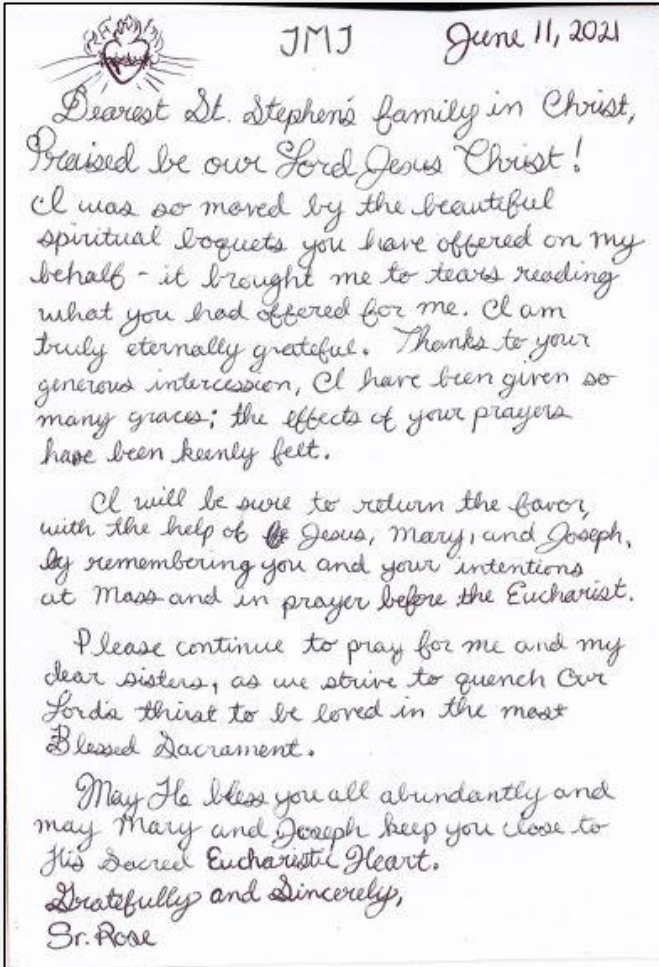 JMJ June 11, 2021
Dearest St. Stephen's family in Christ,
Praised be our Lord Jesus Christ!
I was so moved by the beautiful
spiritual boquets you have offered on my
behalf - it brought me to tears reading
what you had offered for me. I am
truly eternally grateful. Thanks to your
generous intercession, I have been given so
many graces; the effects of your prayers
have been keenly felt.
I will be sure to return the favor,
with the help of Jesus, Mary, and Joseph,
by remembering you and your intentions
at Mass and in prayer before the Eucharist.
Please continue to pray for me and my
dear sisters, as we strive to quench Our
Lord's thirst to be loved in the most
Blessed Sacrament.
May He bless you all abundantly and
may Mary and Joseph keep you close to
His Sacred Eucharistic Heart.
Gratefully and Sincerely,
Sr. Rose